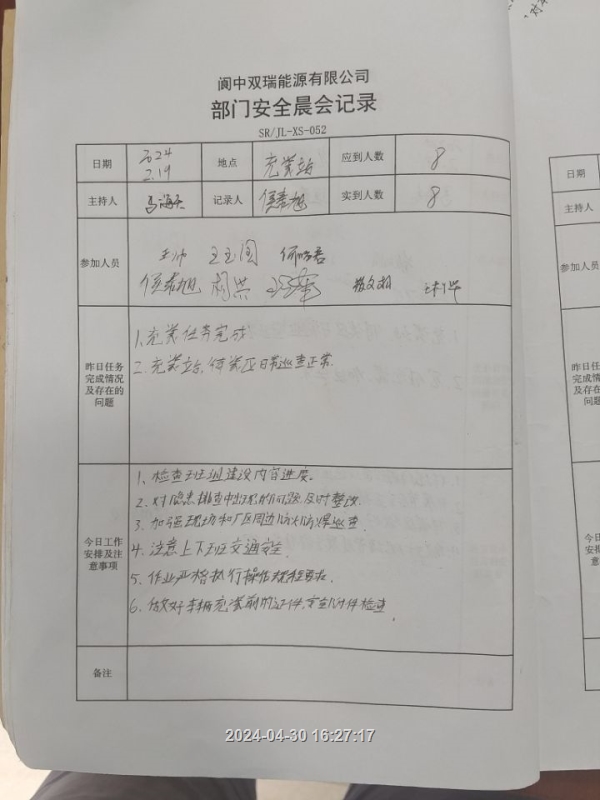 阆中双瑞能源有限公司
部门安全晨会记录
SR/JL-XS-052
日期 2024 2.19 地点 充装站 应到人数 8
主持人 记录人 侯春旭 实到人数 8
参加人员
王帅
侯春旭
昨日任务完成情况及存在的问题
1、充装任务完成
2、充装站、储装区日常巡查正常.
今日工作安排及注意事项
1、检查班组建设内容进度。
2、对隐患排查中出现的问题及时整改.
3、加强现场和厂区周边防火防爆巡查.
4、注意上下班交通安全.
5、作业严格执行操作规程要求.
6、做好车辆充装前的证件,安全附件检查
备注
日期
主持人
参加人员
2024-04-30 16:27:17